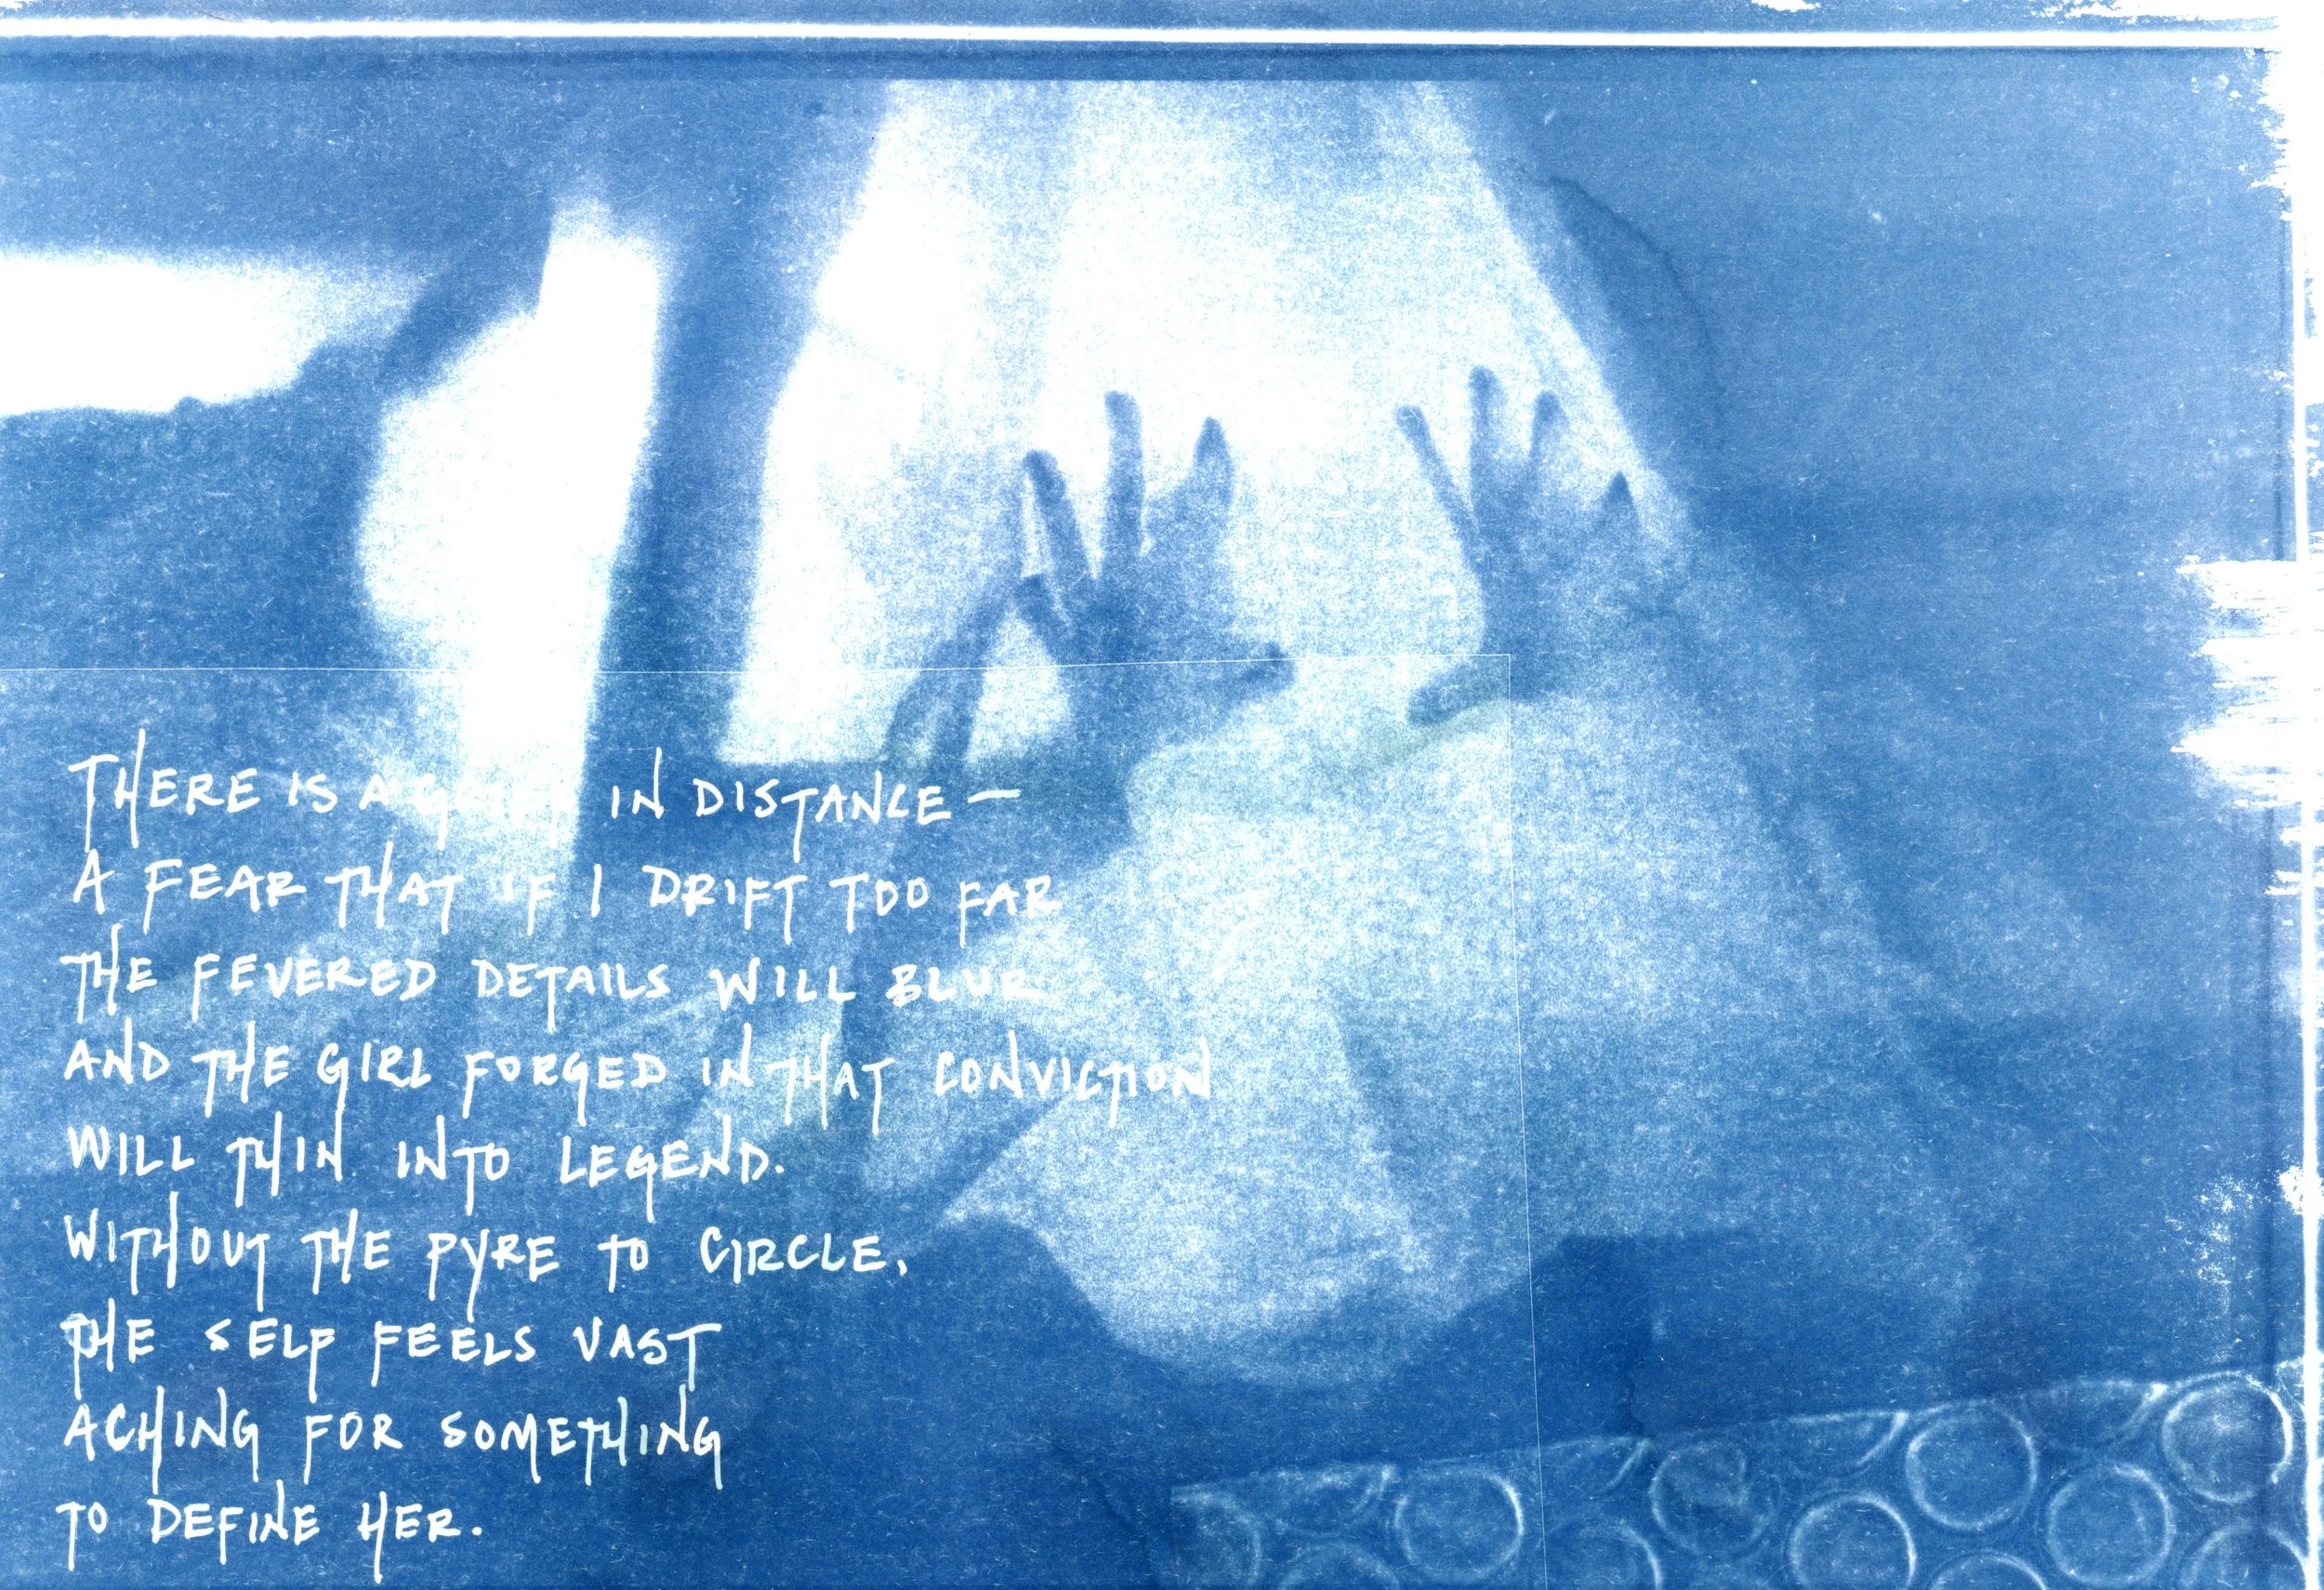 THERE IS A GRIEF IN DISTANCE —
A FEAR THAT IF I DRIFT TOO FAR
THE FEVERED DETAILS WILL BLUR
AND THE GIRL FORGED IN THAT CONVICTION
WILL THIN INTO LEGEND.
WITHOUT THE PYRE TO CIRCLE,
THE SELF FEELS VAST
ACHING FOR SOMETHING
TO DEFINE HER.